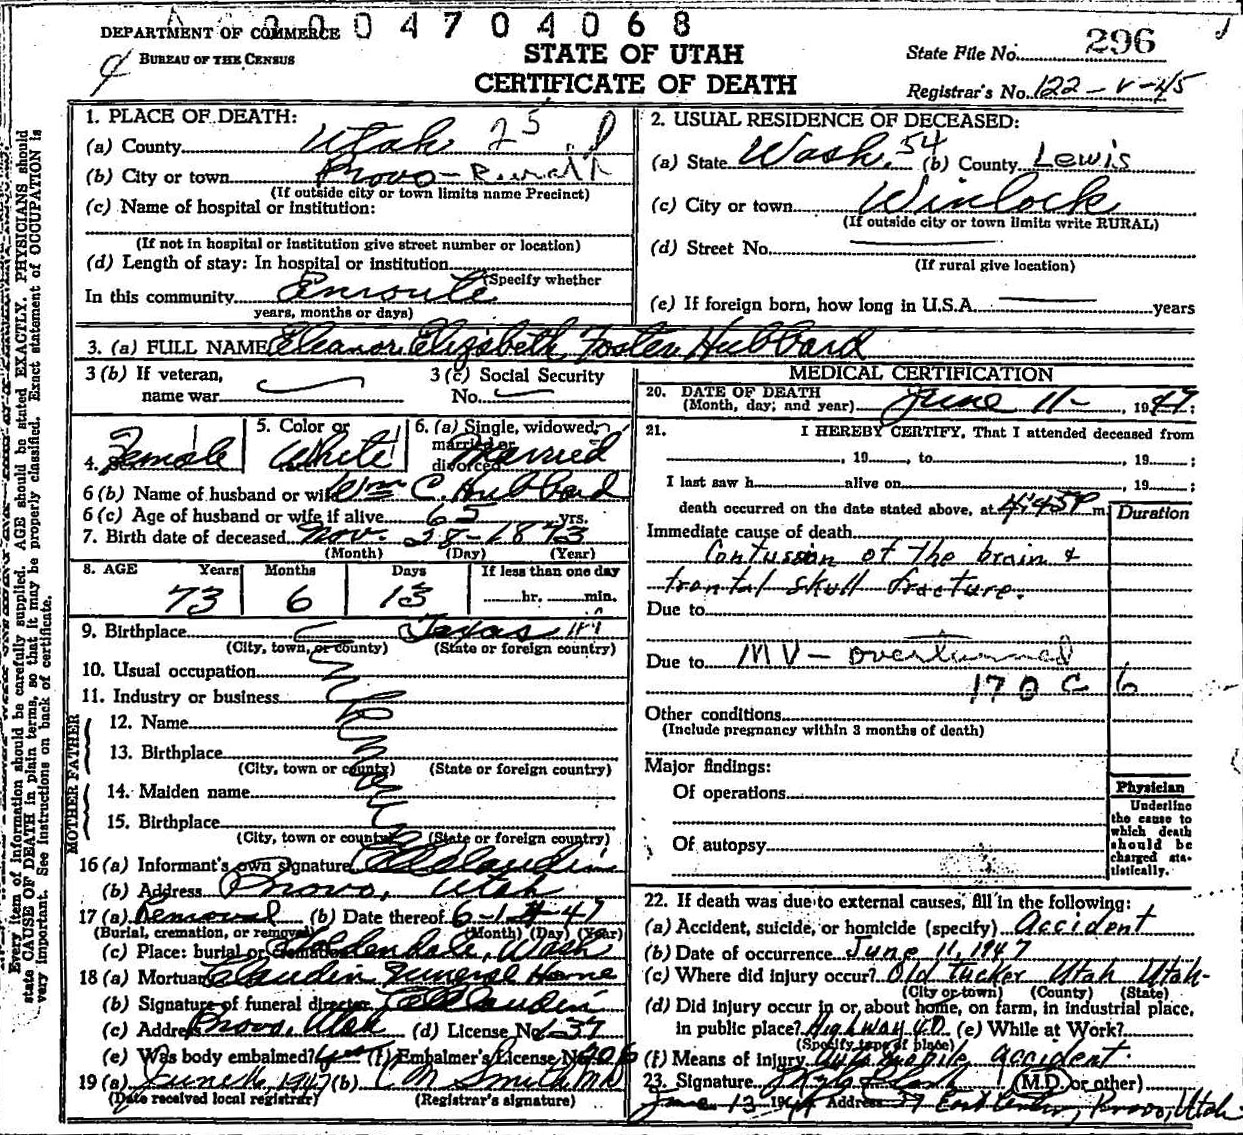 0004704068
DEPARTMENT OF COMMERCE
BUREAU OF THE CENSUS
STATE OF UTAH
CERTIFICATE OF DEATH
State File No. 296
Registrar's No. 122-V-45
Every item of information should be carefully supplied. AGE should be stated EXACTLY. PHYSICIANS should
state CAUSE OF DEATH in plain terms, so that it may be properly classified. Exact statement of OCCUPATION is
very important. See instructions on back of certificate.
1. PLACE OF DEATH: 25
(a) County Utah
(b) City or town Provo - Rural
(If outside city or town limits name Precinct)
(c) Name of hospital or institution:
(If not in hospital or institution give street number or location)
(d) Length of stay: In hospital or institution
(Specify whether
In this community Enroute
years, months or days)
2. USUAL RESIDENCE OF DECEASED:
(a) State Wash. 54 (b) County Lewis
(c) City or town Winlock
(If outside city or town limits write RURAL)
(d) Street No.
(If rural give location)
(e) If foreign born, how long in U.S.A. years
3. (a) FULL NAME Eleanor Elizabeth Foster Hubbard
3 (b) If veteran,
name war
3 (c) Social Security
No.
4. Female
5. Color or White
6. (a) Single, widowed,
married or
divorced Married
6 (b) Name of husband or wife Wm C. Hubbard
6 (c) Age of husband or wife if alive 65 yrs.
7. Birth date of deceased Nov. 28-1873
(Month) (Day) (Year)
8. AGE Years Months Days If less than one day
73 6 13 hr. min.
9. Birthplace Texas
(City, town, or county) (State or foreign country)
10. Usual occupation
11. Industry or business
FATHER
12. Name
13. Birthplace
(City, town or county) (State or foreign country)
MOTHER
14. Maiden name
15. Birthplace
(City, town or county) (State or foreign country)
16 (a) Informant's own signature Claudin
(b) Address Provo, Utah
17 (a) Removal (b) Date thereof 6-14-47
(Burial, cremation, or removal) (Month) (Day) (Year)
(c) Place: burial or cremation Goldendale, Wash
18 (a) Mortuary Claudin Funeral Home
(b) Signature of funeral director Claudin
(c) Address Provo, Utah (d) License No. L-37
(e) Was body embalmed? yes (f) Embalmer's License No. 206
19 (a) June 16, 1947 (b) M Smith MD
(Date received local registrar) (Registrar's signature)
MEDICAL CERTIFICATION
20. DATE OF DEATH
(Month, day, and year) June 11- , 1947;
21. I HEREBY CERTIFY, That I attended deceased from
, 19 , to , 19 ;
I last saw h alive on , 19 ;
death occurred on the date stated above, at 4:45P m.
Duration
Immediate cause of death
Contussion of the brain &
frontal skull fracture.
Due to
Due to MV - overturned
170 C 6
Other conditions
(Include pregnancy within 3 months of death)
Major findings:
Of operations
Of autopsy
Physician
Underline
the cause to
which death
should be
charged sta-
tistically.
22. If death was due to external causes, fill in the following:
(a) Accident, suicide, or homicide (specify) Accident
(b) Date of occurrence June 11, 1947
(c) Where did injury occur? Old Tucker Utah Utah-
(City or town) (County) (State)
(d) Did injury occur in or about home, on farm, in industrial place,
in public place? Highway (e) While at Work?
(Specify type of place)
(f) Means of injury Automobile accident.
23. Signature (M.D. or other)
June 13 Address 37 East Center, Provo, Utah